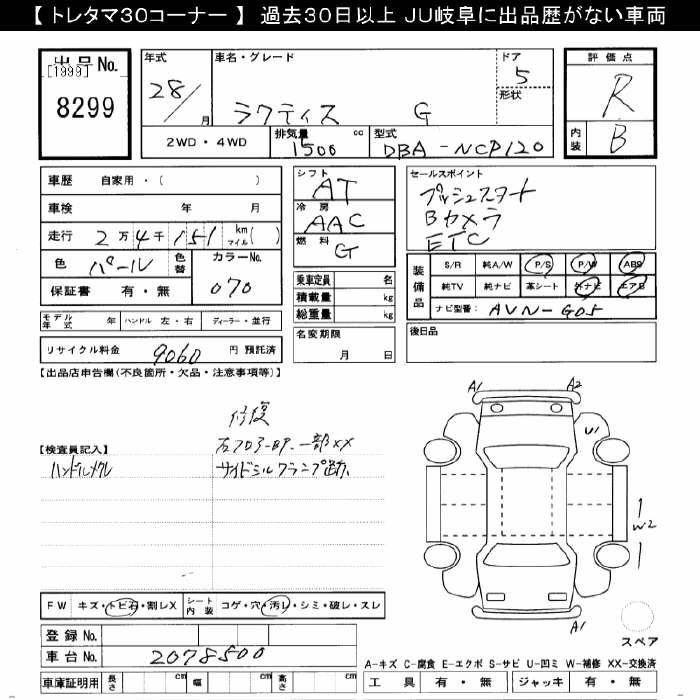 【 トレタマ30コーナー 】 過去30日以上 JU岐阜に出品歴がない車両
出品 No.
[1999]
8299
年式
28/
月
車名・グレード
ラクティス G
ドア
5
形状
2WD・4WD
排気量
1500
cc
型式
DBA-NCP120
評価点
R
内装
B
車歴 自家用・( )
車検 年 月
走行 2万4千151 km マイル( )
色 パール
色替
カラーNo.
070
保証書 有・無
シフト
AT
冷房
AAC
燃料
G
乗車定員 名
積載量 kg
総重量 kg
セールスポイント
プッシュスタート
Bカメラ
ETC
装備品
S/R 純A/W P/S P/W ABS
純TV 純ナビ 革シート 外ナビ エアB
ナビ型番: AVN-G05
モデル年式 年
ハンドル 左・右
ディーラー・並行
名変期限
月 日
後日品
リサイクル料金 9060 円 預託済
【出品店申告欄(不良箇所・欠品・注意事項等)】
修復
【検査員記入】
ハンドルメクレ
サイドシルフランプ
A1
A2
U1
W2
A1
スペア
FW キズ・トビ石・割レX
シート内装 コゲ・穴・汚レ・シミ・破レ・スレ
登録 No.
車台 No. 2078500
車庫証明用 長さ cm 幅 cm 高さ cm
A-キズ C-腐食 E-エクボ S-サビ U-凹ミ W-補修 XX-交換済
工具 有・無 ジャッキ 有・無